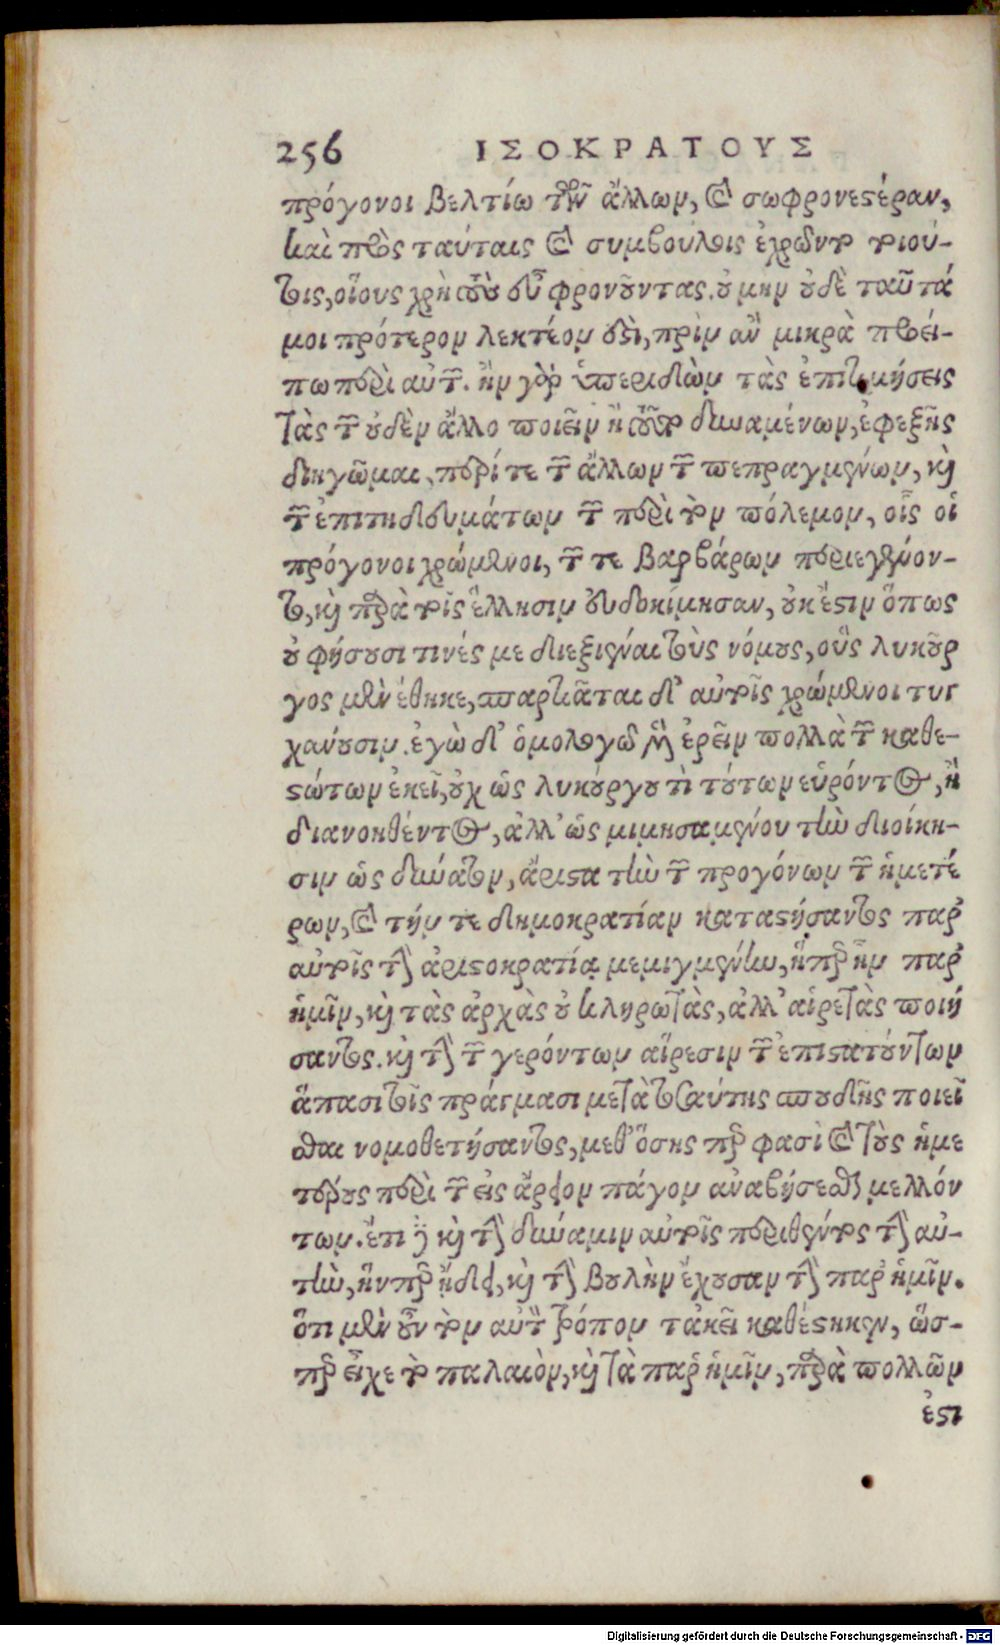 256 ΙΣΟΚΡΑΤΟΥΣ
πρόγονοι βελτίω τῶν ἄλλων, καὶ σωφρονεστέραν,
καὶ πρὸς ταύταις καὶ συμβούλοις ἐχρῶντο τοιού-
τοις, οἵους χρὴ τοὺς εὖ φρονοῦντας. οὐ μὴν οὐδὲ ταῦτά
μοι πρότερον λεκτέον ἐστὶ, πρὶν ἂν μικρὰ προεί-
πω περὶ αὐτῶν. ἢν γὰρ ὑπεριδὼν τὰς ἐπιτιμήσεις
τὰς τῶν οὐδὲν ἄλλο ποιεῖν ἢ τοῦτο δυναμένων, ἐφεξῆς
διηγῶμαι, περί τε τῶν ἄλλων τῶν πεπραγμένων, καὶ
τῶν ἐπιτηδευμάτων τῶν περὶ τὸν πόλεμον, οἷς οἱ
πρόγονοι χρώμενοι, τῶν τε βαρβάρων περιεγένον-
το, καὶ παρὰ τοῖς ἕλλησιν εὐδοκίμησαν, οὐκ ἔστιν ὅπως
οὐ φήσουσι τινές με διεξιέναι τοὺς νόμους, οὓς λυκοῦρ
γος μὲν ἔθηκε, σπαρτιᾶται δ' αὐτοῖς χρώμενοι τυγ
χάνουσιν. ἐγὼ δ' ὁμολογῶ μὲν ἐρεῖν πολλὰ τῶν καθε-
στώτων ἐκεῖ, οὐχ ὡς λυκούργου τὶ τούτων εὑρόντος, ἢ
διανοηθέντος, ἀλλ' ὡς μιμησαμένου τὴν διοίκη-
σιν ὡς δυνάτον, ἄριστα τὴν τῶν προγόνων τῶν ἡμετέ
ρων, καὶ τήν τε δημοκρατίαν καταστήσαντος παρ'
αὐτοῖς τὴν ἀριστοκρατίᾳ μεμιγμένην, ἥπερ ἦν παρ'
ἡμῖν, καὶ τὰς ἀρχὰς οὐ κληρωτὰς, ἀλλ' αἱρετὰς ποιή
σαντος. καὶ τὴν τῶν γερόντων αἵρεσιν τῶν ἐπιστατούντων
ἅπασι τοῖς πράγμασι μετὰ τοσαύτης σπουδῆς ποιεῖ
σθαι νομοθετήσαντος, μεθ' ὅσης περ φασὶ καὶ τοὺς ἡμε
τέρους περὶ τῶν εἰς ἄρειον πάγον ἀναβήσεσθαι μελλόν
των. ἔτι δὲ καὶ τὴν δύναμιν αὐτοῖς περιθέντος τὴν αὐ-
τὴν, ἥνπερ ᾔδει, καὶ τὴν βουλὴν ἔχουσαν τὴν παρ' ἡμῖν.
ὅτι μὲν οὖν τὸν αὐτὸν τρόπον τἀκεῖ καθέστηκεν, ὥσ-
περ εἶχε τὸ παλαιὸν, καὶ τὰ παρ' ἡμῖν, παρὰ πολλῶν
ἐστι
Digitalisierung gefördert durch die Deutsche Forschungsgemeinschaft - DFG